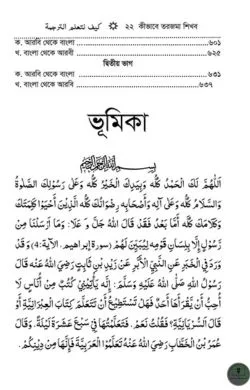 كيف نتعلم الترجمة ২২ কীভাবে তরজমা শিখব
ক. আরবি থেকে বাংলা ৬০১
খ. বাংলা থেকে আরবী ৬২৫
দ্বিতীয় ভাগ
ক. আরবি থেকে বাংলা ৬৩১
খ. বাংলা থেকে আরবি ৬৩৭
ভূমিকা
بسم الله الرحمن الرحيم
اَللّٰهُمَّ لَكَ الْحَمْدُ كُلُّهُ وَبِيَدِكَ الْخَيْرُ كُلُّهُ وَعَلٰى رَسُوْلِكَ الصَّلٰوةُ
وَالسَّلَامُ كُلُّهُ وَعَلٰى آلِهِ وَأَصْحَابِهِ رِضْوَانُكَ كُلُّهُ الَّذِيْنَ أَحْيَوْا كَلِمَتَكَ
وَكَلَامَكَ كُلَّهُ أَمَّا بَعْدُ فَقَدْ قَالَ اللهُ جَلَّ وَعَلَا: وَمَا أَرْسَلْنَا مِنْ
رَّسُوْلٍ إِلَّا بِلِسَانِ قَوْمِهِ لِيُبَيِّنَ لَهُمْ (سورة إبراهيم، الآية:4) وَقَدْ
وَرَدَ فِي الْخَبَرِ عَنِ النَّبِيِّ الْأَبَرِّ عَنْ زَيْدِ بْنِ ثَابِتٍ رَضِيَ اللهُ عَنْهُ قَالَ
رَسُوْلُ اللهِ صَلَّى اللهُ عَلَيْهِ وَسَلَّمَ: إِنَّهُ يَأْتِيْنِيْ كُتُبٌ مِنْ أُنَاسٍ لَا
أُحِبُّ أَنْ يَّقْرَأَهَا أَحَدٌ فَهَلْ تَسْتَطِيْعُ أَنْ تَتَعَلَّمَ كِتَابَ الْعِبْرَانِيَّةِ أَوْ
قَالَ السُّرْيَانِيَّةِ؟ فَقُلْتُ نَعَمْ. فَتَعَلَّمْتُهَا فِيْ سَبْعَ عَشْرَةَ لَيْلَةً. وَقَالَ
عُمَرُ بْنُ الْخَطَّابِ رَضِيَ اللهُ عَنْهُ تَعَلَّمُوا الْعَرَبِيَّةَ فَإِنَّهَا مِنْ دِيْنِكُمْ.